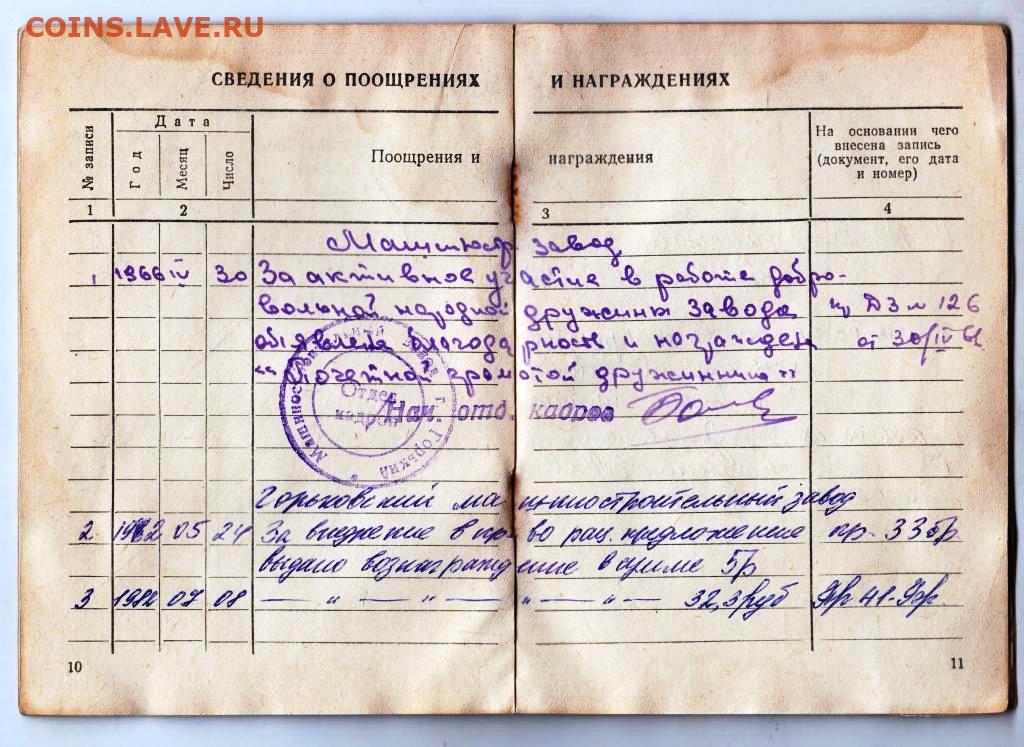 COINS.LAVE.RU
СВЕДЕНИЯ О ПООЩРЕНИЯХ И НАГРАЖДЕНИЯХ
№ записи
Дата
Год
Месяц
Число
Поощрения и награждения
На основании чего
внесена запись
(документ, его дата
и номер)
1 2 3 4
Машиностр завод
1 1966 IV 30 За активное участие в работе добро-
вольной народной дружины завода пр ДЗ № 126
объявлена благодарность и награжден от 30/IV 66
"Почетной грамотой дружинника"
Машиностроительный завод г. Горький
Отдел
кадров
Нач. отд. кадров
Горьковский машиностроительный завод
2 1982 05 24 За внедрение в пр-во рац. предложение пр. 33 бр.
выдано вознаграждение в сумме 5р
3 1982 07 08 — " — " — " — " — 32,3 руб пр 41-
10
11